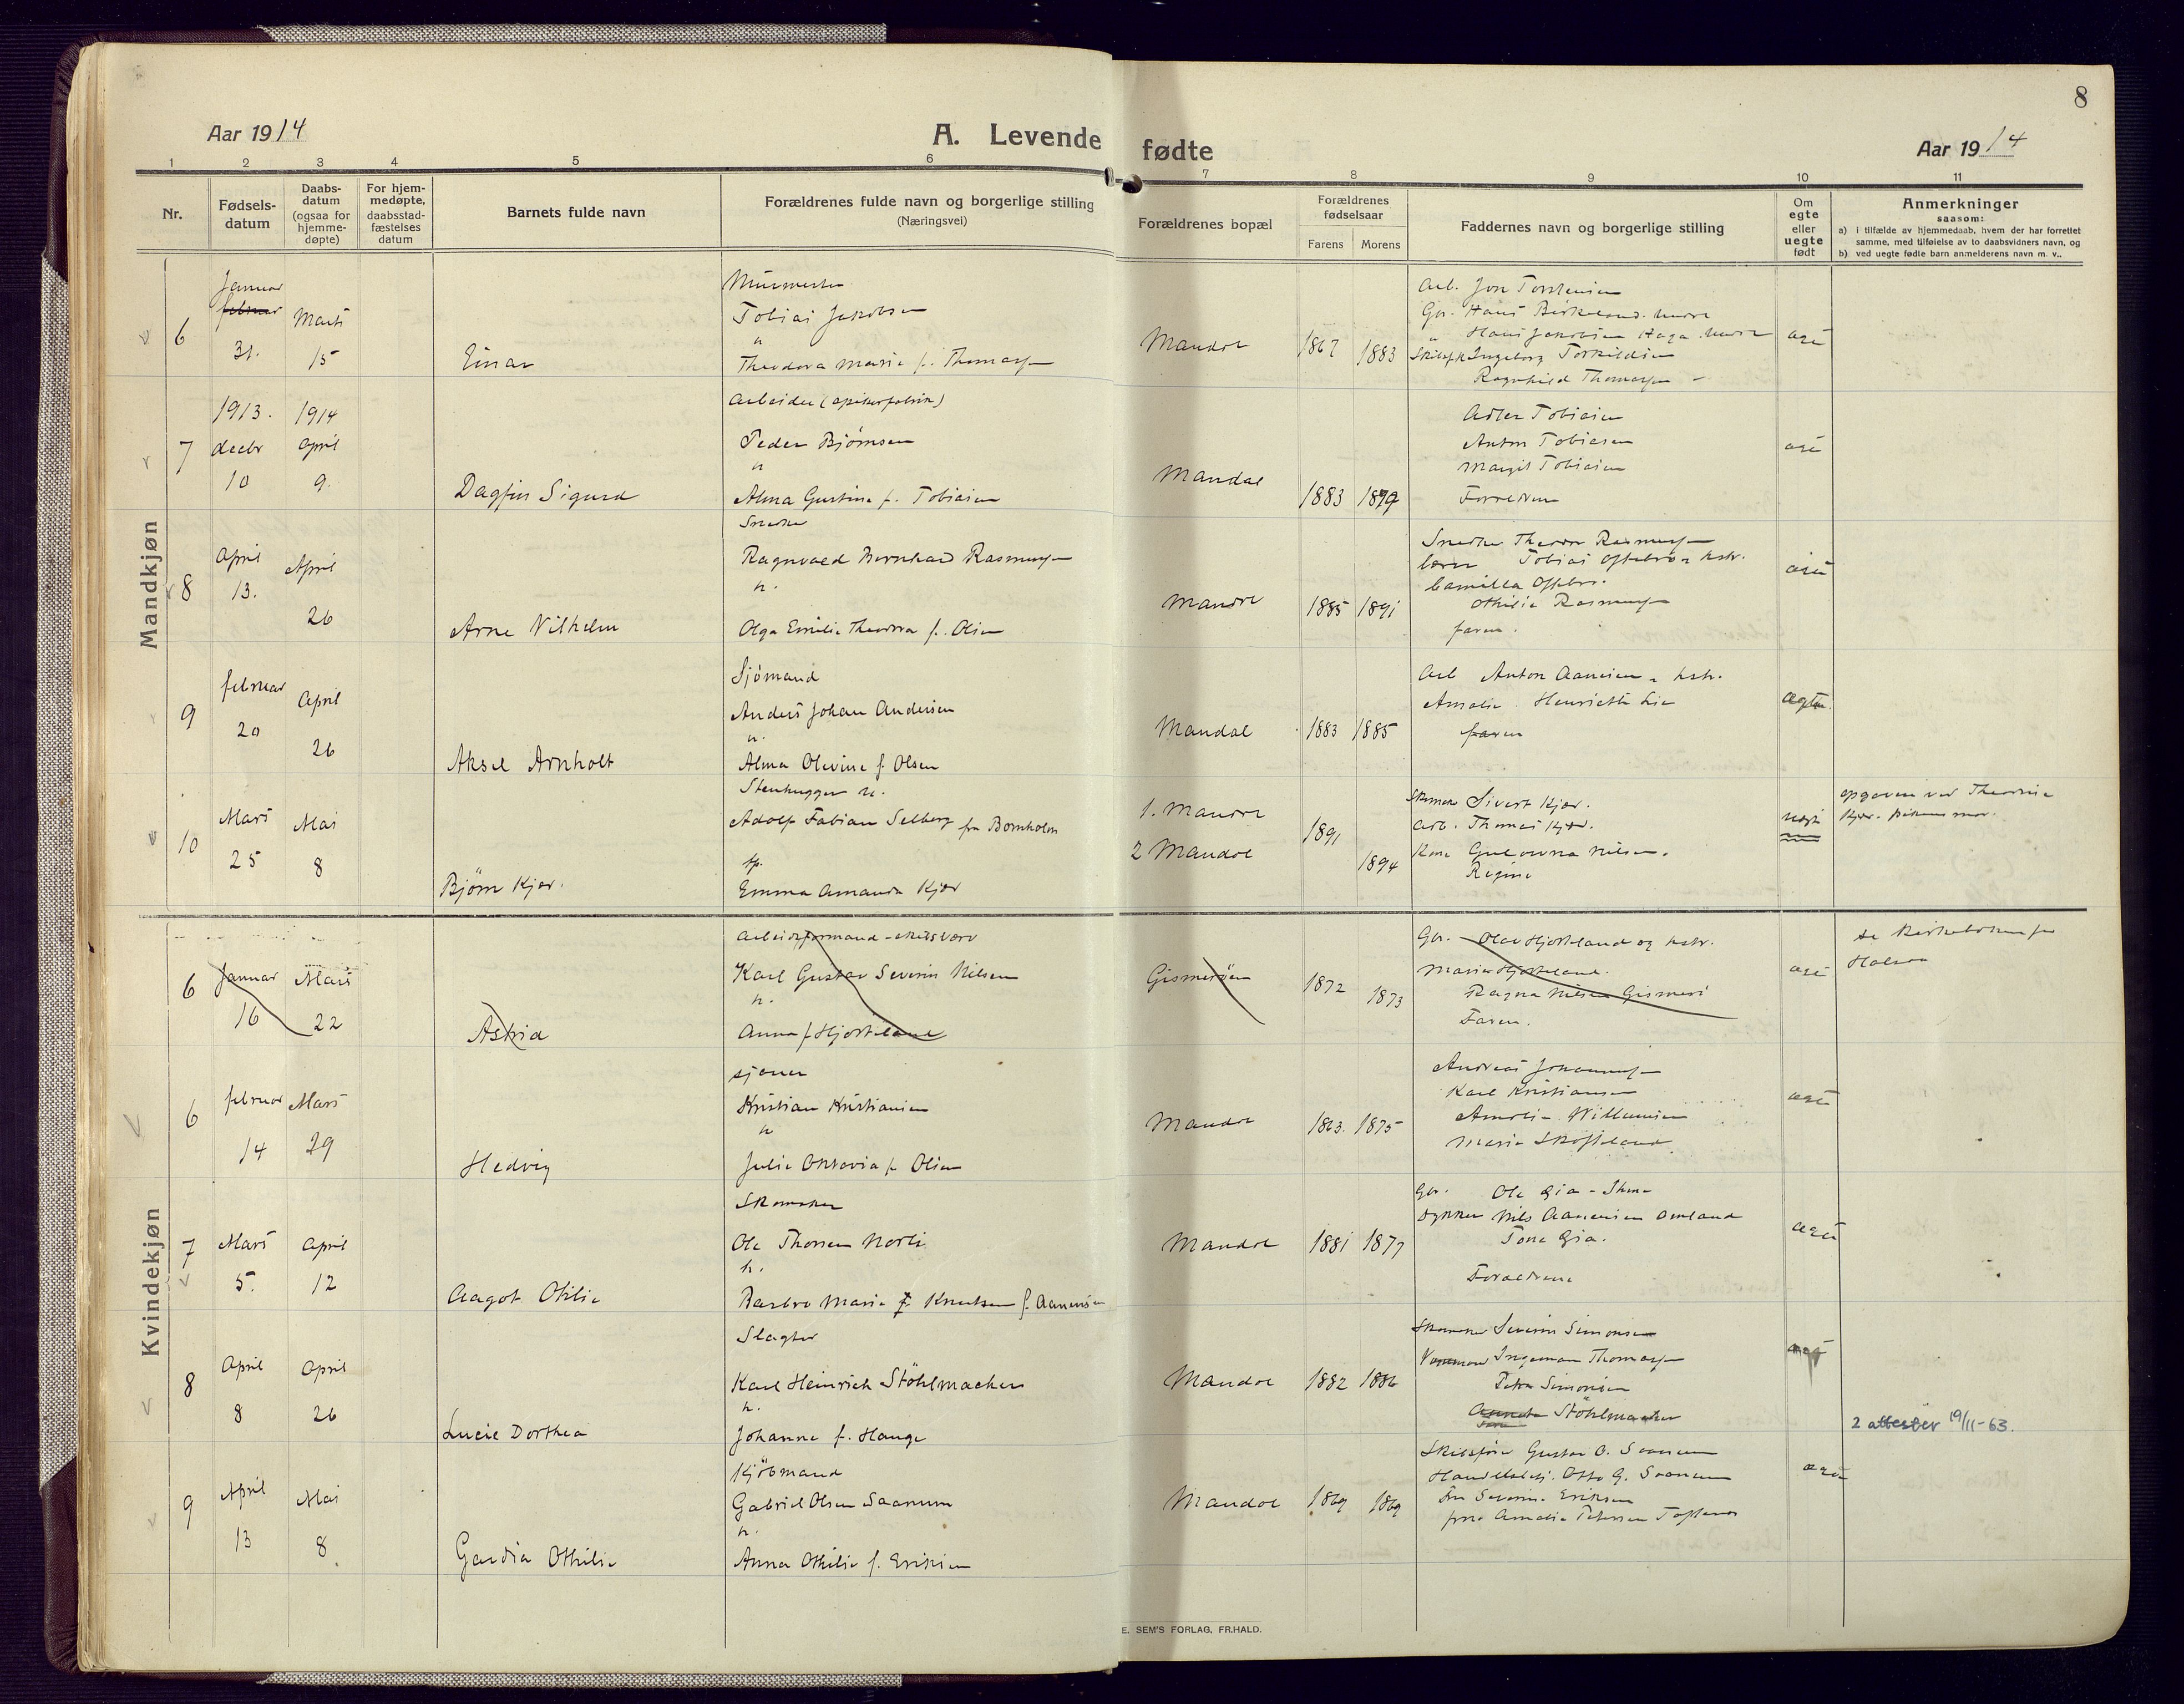 8
Aar 1914
A. Levende fødte
Aar 1914
1 2 3 4 5 6 7 8 9 10 11
Nr.
Fødsels-
datum
Daabs-
datum
(ogsaa for
hjemme-
døpte)
For hjem-
medøpte,
daabsstad-
fæstelses
datum
Barnets fulde navn
Forældrenes fulde navn og borgerlige stilling
(Næringsvei)
Forældrenes bopæl
Forældrenes
fødselsaar
Farens Morens
Faddernes navn og borgerlige stilling
Om
egte
eller
uegte
født
Anmerkninger
saasom:
a) i tilfælde av hjemmedaab, hvem der har forrettet
samme, med tilføielse av to daabsvidners navn, og
b) ved uegte fødte barn anmelderens navn m. v..
Mandkjøn
6
Januar
februar
31.
Marts
15
Einar
Murmester
Tobias Jakobsen
Theodora Marie f. Thomassen
Mandal
1867 1883
Arb. Jon Torstensen
Gbr. Hans Birkeland
Ingeborg Torkildsen
Ragnhild Thomassen
7
1913.
decbr
10
1914
April
9.
Dagfin Sigurd
Arbeider
Peder Bjørnsen
Alma Gustine f. Tobiasen
Mandal
1883 1879
Adler Tobiasen
Anton Tobiasen
Margit Tobiasen
Forældrene
8
April
13.
April
26
Arne Vilhelm
Snedker
Ragnvald Bernhard Rasmussen
h.
Olga Emilie Theodora f. Olsen
Mandal
1885 1891
Snedker Theodor Rasmussen
Othilie Rasmussen
faren.
9
februar
20
April
26
Aksel Arnholt
Sjømand
Anders Johan Andersen
h.
Alma Olevine f. Olsen
Mandal
1883 1885
Arb Anton Aanensen
Amalie Henriette Lie
faren
10
Mars
25
Mai
8
Bjørn Kjær.
Stenhugger
Adolf Fabian Selberg fra Bornholm
Emma Amanda Kjær
1. Mandal
2 Mandal
1891
1894
Sivert Kjær.
Arb. Thomas Kjær.
Regine
Kvindekjøn
6
Januar
16
Mars
22
Astrid
Karl Gustav Severin Nilsen
h.
Anna f. Hjorteland
Gismerøen
1872 1873
Gbr. Olav Hjorteland og hstr.
Marie Hjorteland.
Ragna Nilsen Gismerø
Faren.
6
februar
14
Mars
29
Hedvig
Kristian Kristiansen
h
Julie Oktavia f. Olsen
Mandal
1863. 1875
Andreas Johannessen
Karl Kristiansen
Amalie Willumsen
Marie Skofteland
7
Mars
5.
April
12
Aagot Othilie
Skomaker
Ole Thorsen Norli
h.
Barbro Marie Knutsen f. Aanensen
Mandal
1881 1877
Nils Aanensen Omland
Tone Gia.
Forældrene
8
April
8
April
26
Lucie Dorthea
Slagter
Karl Heinrich Stöhlmacher
h.
Johanne f. Hauge
Mandal
1882 1886
Skomaker Severin Simonsen
Ingeman Thomassen
Petra Simonsen
Stöhlmacher
2 attester 19/11-63.
9
April
13
Mai
8.
Gerdia Othilie
Kjøbmand
Gabriel Olsen Saanum
h.
Anna Othilie f. Eriksen
Mandal
1869 1869
Skibsfører Gustav O. Saanum
Otto G. Saanum
Fru Severine Eriksen
E. SEM'S FORLAG, FR.HALD.